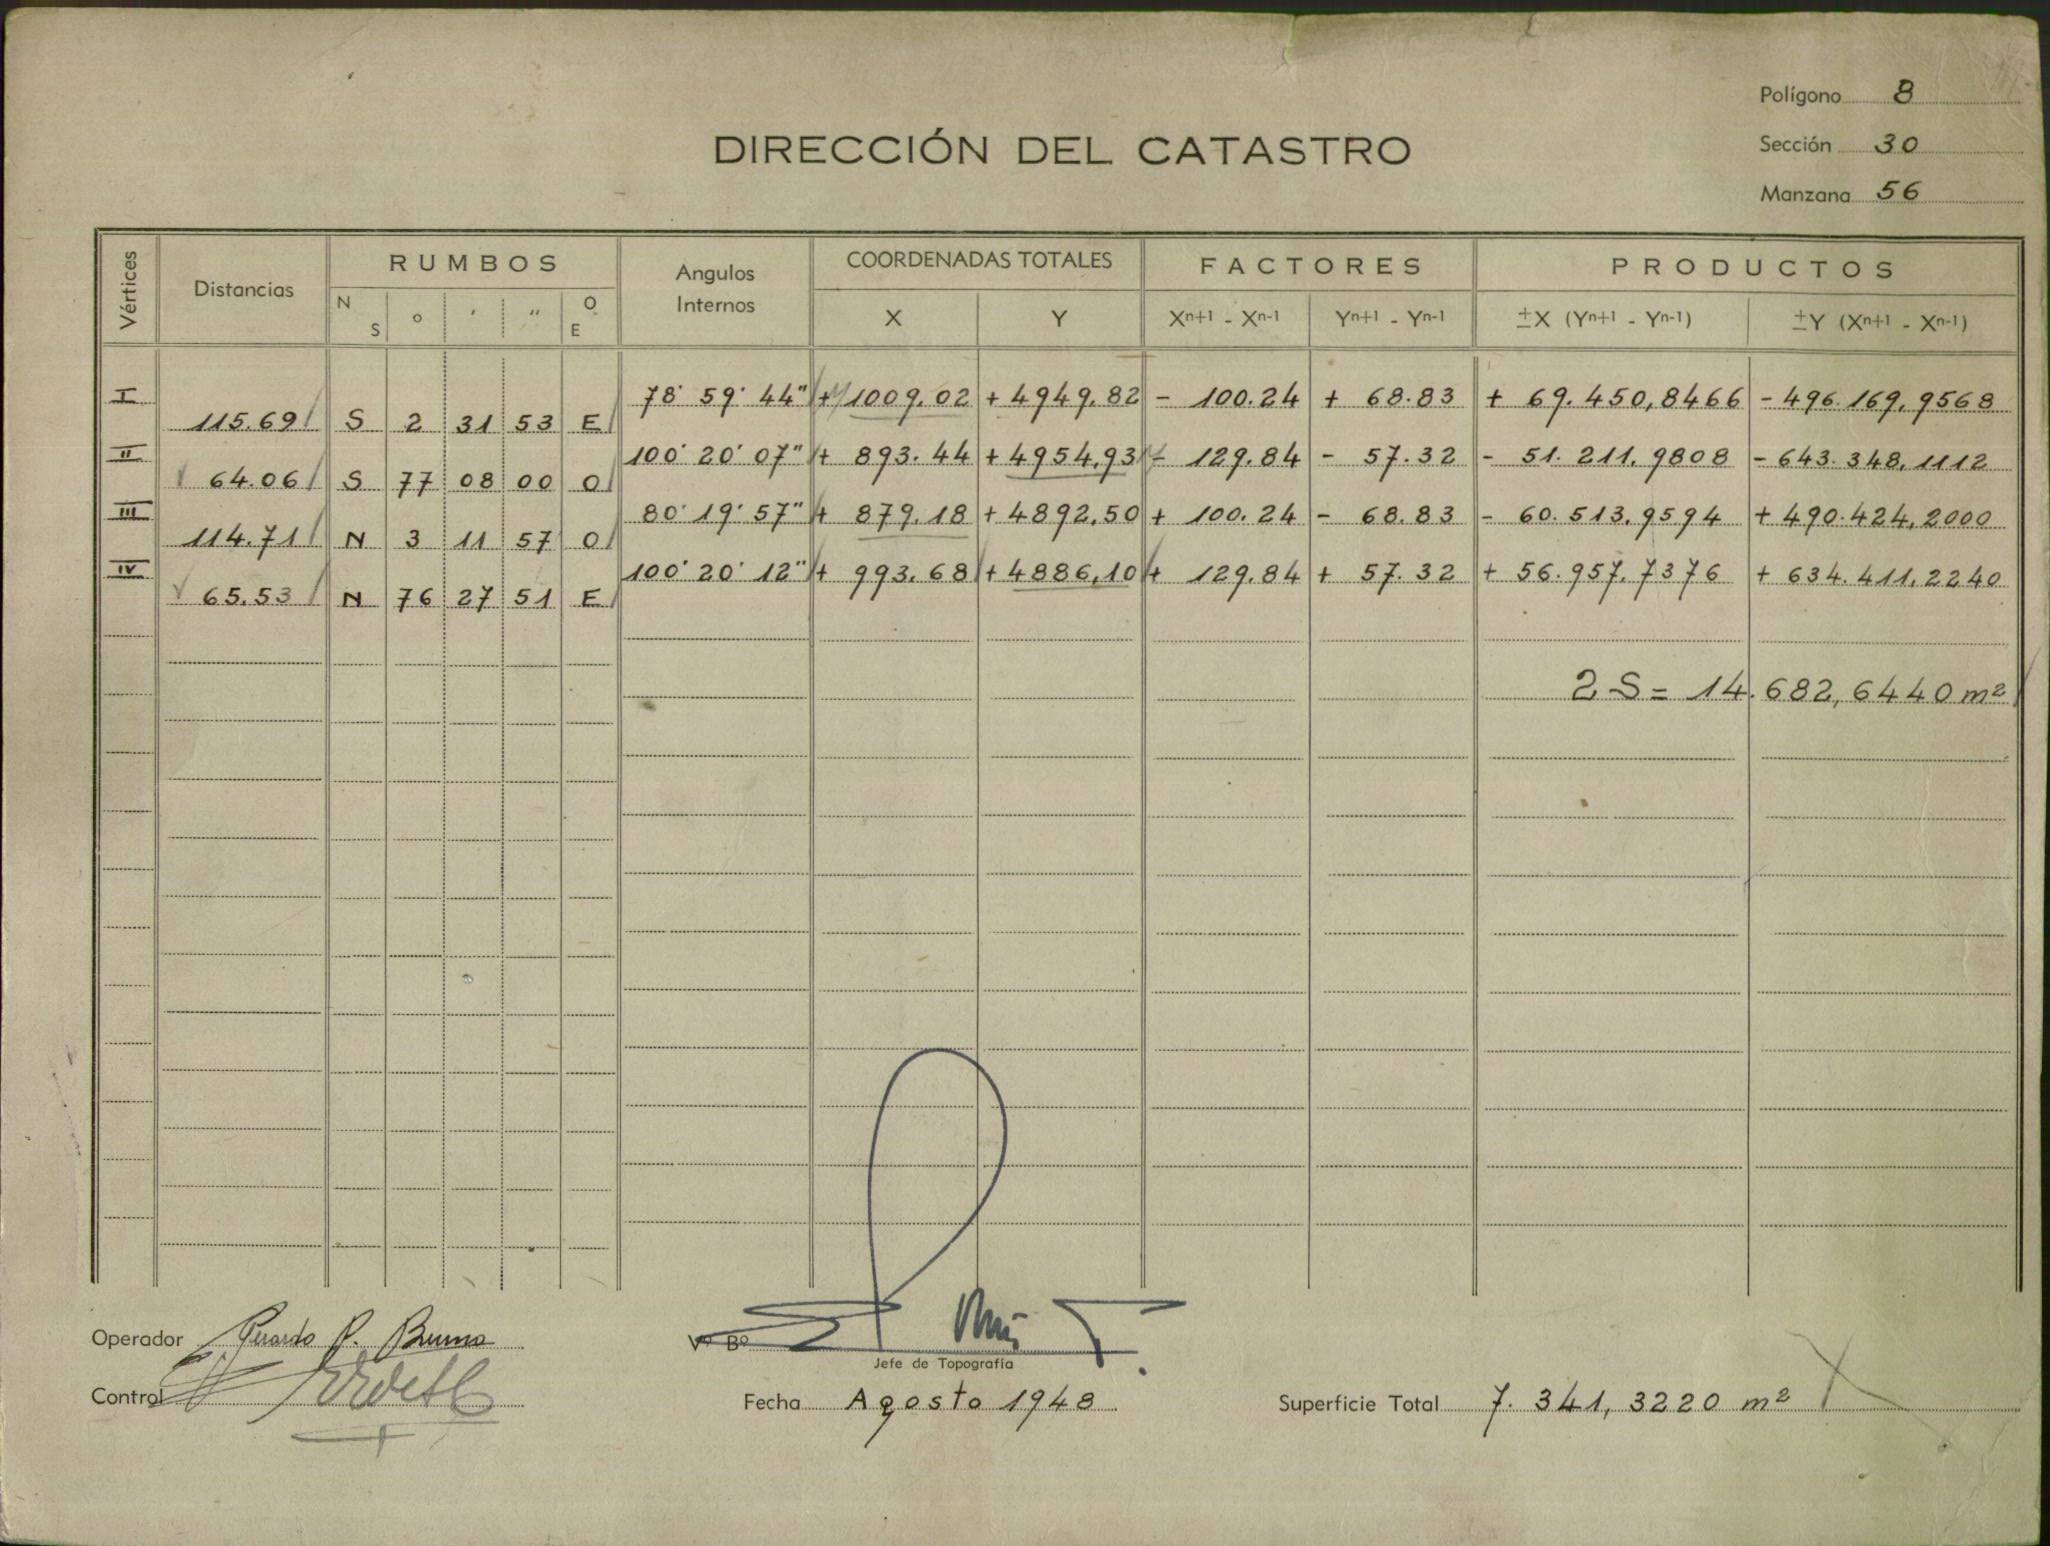 Polígono 8
DIRECCIÓN DEL CATASTRO
Sección 30
Manzana 56
Vértices Distancias RUMBOS Angulos Internos COORDENADAS TOTALES FACTORES PRODUCTOS
N S ° ' " O E X Y Xn+1 - Xn-1 Yn+1 - Yn-1 ±X (Yn+1 - Yn-1) ±Y (Xn+1 - Xn-1)
I 78° 59' 44" + 1009.02 + 4949.82 - 100.24 + 68.83 + 69.450,8466 - 496.169,9568
115.69 S 2 31 53 E
II 100° 20' 07" + 893.44 + 4954,93 - 129.84 - 57.32 - 51.211,9808 - 643.348,1112
64.06 S 77 08 00 O
III 80° 19' 57" + 879.18 + 4892,50 + 100.24 - 68.83 - 60.513,9594 + 490.424,2000
114.71 N 3 11 57 O
IV 100° 20' 12" + 993.68 + 4886,10 + 129.84 + 57.32 + 56.957,7376 + 634.411,2240
65.53 N 76 27 51 E
2 S = 14.682,6440 m²
Operador Gerardo P. Bruno
Vº Bº
Jefe de Topografía
Control
Fecha Agosto 1948
Superficie Total 7.341,3220 m²